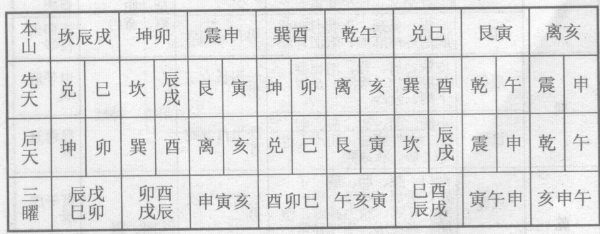 本山 坎辰戌 坤卯 震申 巽酉 乾午 兑巳 艮寅 离亥
先天 兑 巳 坎 辰戌 艮 寅 坤 卯 离 亥 巽 酉 乾 午 震 申
后天 坤 卯 巽 酉 离 亥 兑 巳 艮 寅 坎 辰戌 震 申 乾 午
三曜 辰戌巳卯 卯酉戌辰 申寅亥 酉卯巳 午亥寅 巳酉辰戌 寅午申 亥申午